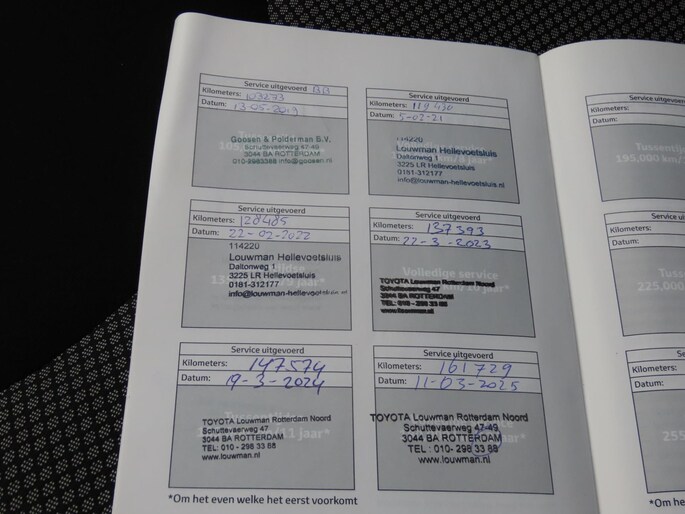 Service uitgevoerd BB
Kilometers: 103273
Datum: 13-05-2019
Goosen & Polderman B.V.
Schuttevaerweg 47-49
3044 BA ROTTERDAM
010-2983388 info@goosen.nl
Service uitgevoerd
Kilometers: 119430
Datum: 5-02-21
114220
Louwman Hellevoetsluis
Daltonweg 1
3225 LR Hellevoetsluis
0181-312177
info@louwman-hellevoetsluis.nl
Service uitgevoerd
Kilometers: 128485
Datum: 22-02-2022
114220
Louwman Hellevoetsluis
Daltonweg 1
3225 LR Hellevoetsluis
0181-312177
info@louwman-hellevoetsluis.nl
Service uitgevoerd
Kilometers: 137393
Datum: 22-3-2023
Volledige service
TOYOTA Louwman Rotterdam Noord
Schuttevaerweg 47
3044 BA ROTTERDAM
TEL: 010 - 298 33 88
www.louwman.nl
Service uitgevoerd
Kilometers: 147574
Datum: 19-3-2024
TOYOTA Louwman Rotterdam Noord
Schuttevaerweg 47
3044 BA ROTTERDAM
TEL: 010- 298 33 88
www.louwman.nl
/11 jaar*
Service uitgevoerd
Kilometers: 161729
Datum: 11-03-2025
TOYOTA Louwman Rotterdam Noord
Schuttevaerweg 47-49
3044 BA ROTTERDAM
TEL: 010- 298 33 88
www.louwman.nl
*Om het even welke het eerst voorkomt
Service uitgevoerd
Kilometers:
Datum:
Tussentij
195,000 km/
Service u
Kilometers:
Datum:
Tusse
225,000
Se
Kilometers:
Datum:
255
*Om he